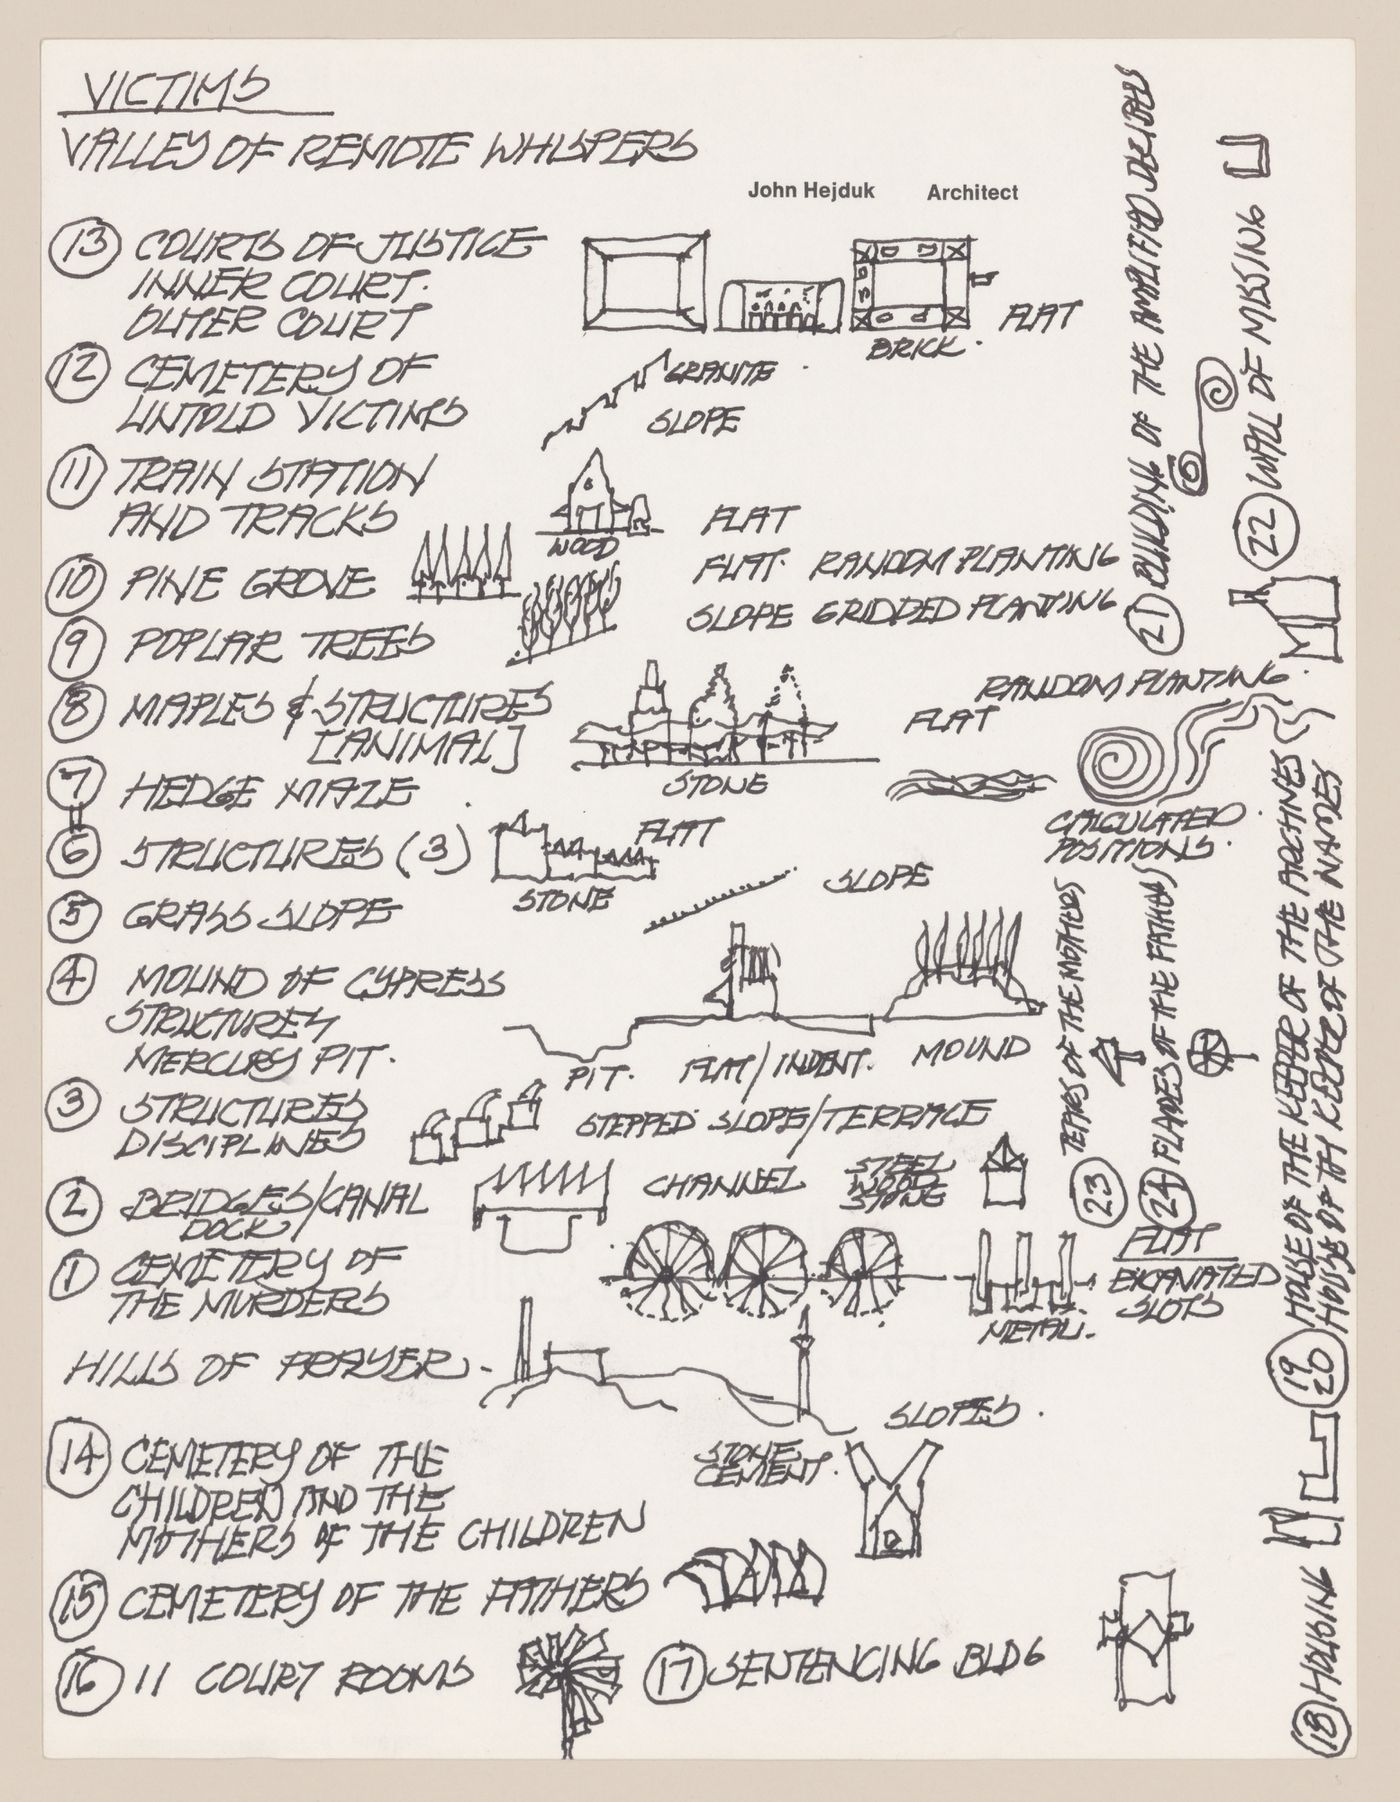 VICTIMS
VALLEY OF REMOTE WHISPERS
John Hejduk Architect
13 COURTS OF JUSTICE
INNER COURT.
OUTER COURT
BRICK.
FLAT
12 CEMETERY OF
UNTOLD VICTIMS
GRANITE
SLOPE
11 TRAIN STATION
AND TRACKS
WOOD
FLAT
10 PINE GROVE
FLAT. RANDOM PLANTING
9 POPLAR TREES
SLOPE GRIDDED PLANTING
8 MAPLES & STRUCTURES
[ANIMAL]
STONE
FLAT
RANDOM PLANTING.
7 HEDGE MAZE
CALCULATED
POSITIONS.
6 STRUCTURES (3)
FLAT
STONE
5 GRASS SLOPE
SLOPE
4 MOUND OF CYPRESS
STRUCTURES
MERCURY PIT.
PIT. FLAT/INDENT. MOUND
3 STRUCTURES
DISCIPLINES
STEPPED SLOPE/TERRACE
2 BRIDGES/CANAL
DOCK/
CHANNEL
STEEL
WOOD
STONE
1 CEMETERY OF
THE MURDERS
METAL.
FLAT
EXCAVATED
SLOTS
HILLS OF PRAYER.
SLOPES.
14 CEMETERY OF THE
CHILDREN AND THE
MOTHERS OF THE CHILDREN
STONE
CEMENT.
15 CEMETERY OF THE FATHERS
16 11 COURT ROOMS
17 SENTENCING BLDG
18 HOUSING
19 HOUSE OF THE KEEPER OF THE ARCHINES
20 HOUSE OF TH KEEPER OF THE NAMES
21 BUILDING OF THE AMPLIFIED DECIBELS
22 WALL OF MISSING
23 OF THE MOTHERS
24 OF THE FATHERS